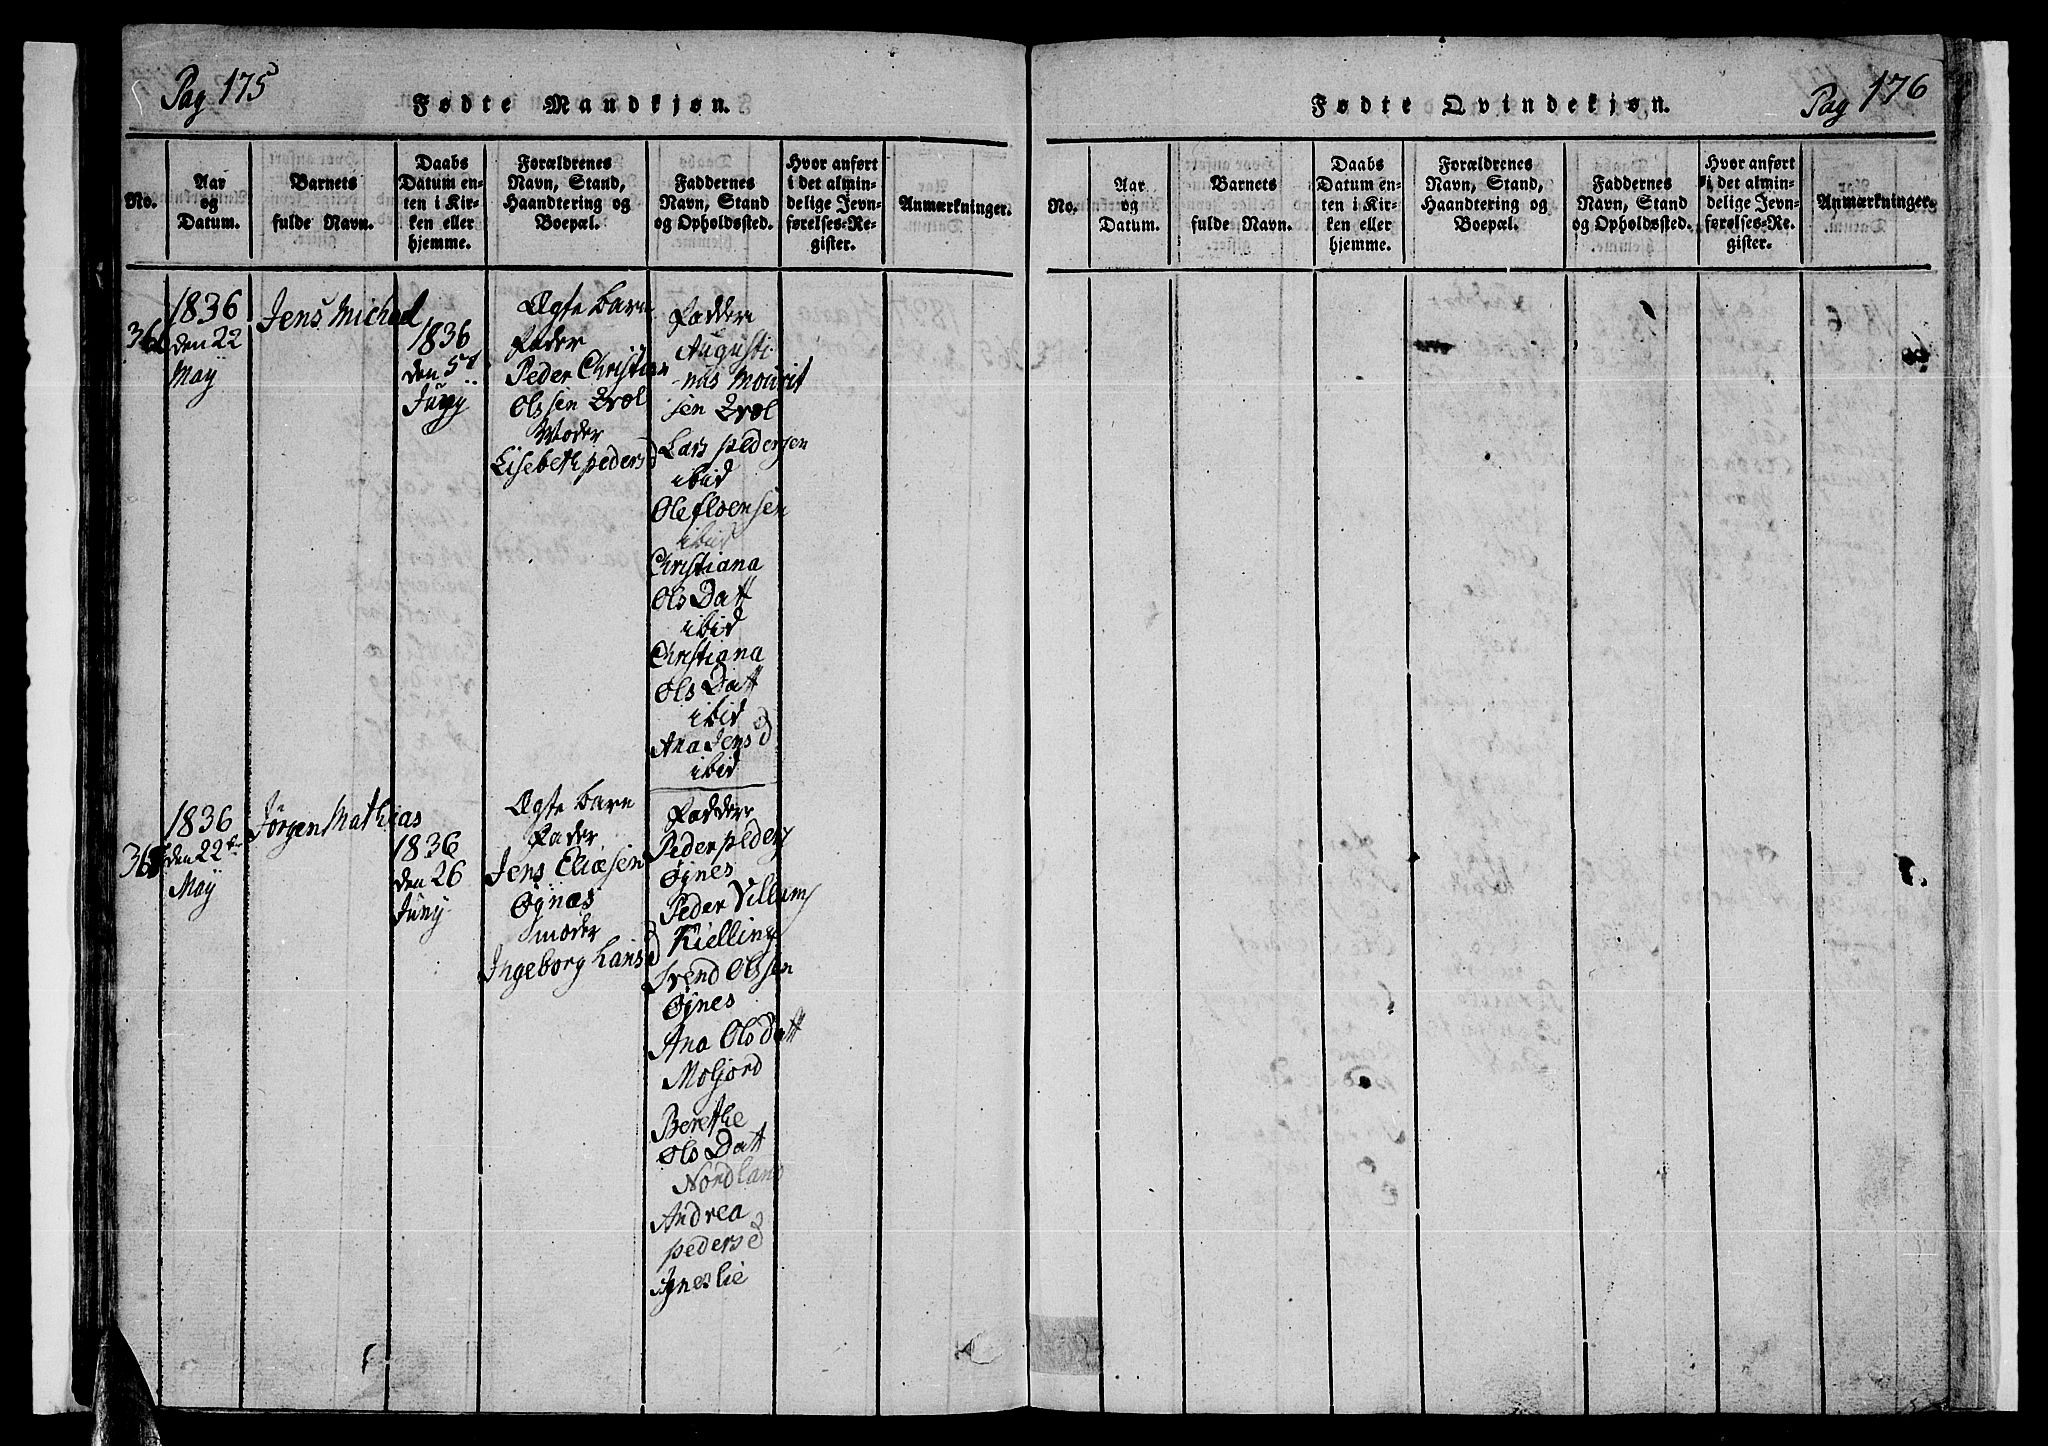 Pag 175
Fødte Mandkjøn.
No.
Aar
og
Datum.
Barnets
fulde Navn.
Daabs
Datum en-
ten i Kir-
ken eller
hjemme.
Forældrenes
Navn, Stand,
Haandtering og
Boepæl.
Faddernes
Navn, Stand
og Opholdssted.
Hvor anført
i det almin-
delige Jevn-
førelses-Re-
gister.
Anmærkninger.
1836
den 22
May
Jens Michael
1836
den 5t
Juny
Ægte barn
Fader
Peder Christian
Olssen Evæl
Moder
Lisebeth peders d
Faddere
Augusti
nus Mourit
sen Evæl
Lars pedersen
ibid
Ole
ibid
Christiana
Ols Datt
ibid
Christiana
Ols Datt
ibid
Ana Jens d
ibid
1836
den 22
May
Jørgen Mathias
1836
den 26
Juny
Ægte barn
Fader
Jens Eliæsen
Øÿnæs
moder
Ingeborg Lars d
Faddere
Peder peders
Øjnes
Peder Villums
Kielling
Svend Olssen
Øjnes
Ana Ols datt
Moljord
Berethe
Ols Datt
Nordland
Andrea
peders d
Fødte Qvindekjøn.
Pag 176
No.
Aar
og
Datum.
Barnets
fulde Navn.
Daabs
Datum en-
ten i Kir-
ken eller
hjemme.
Forældrenes
Navn, Stand,
Haandtering og
Boepæl.
Faddernes
Navn, Stand
og Opholdssted.
Hvor anført
i det almin-
delige Jevn-
førelses-Re-
gister.
Anmærkninger.